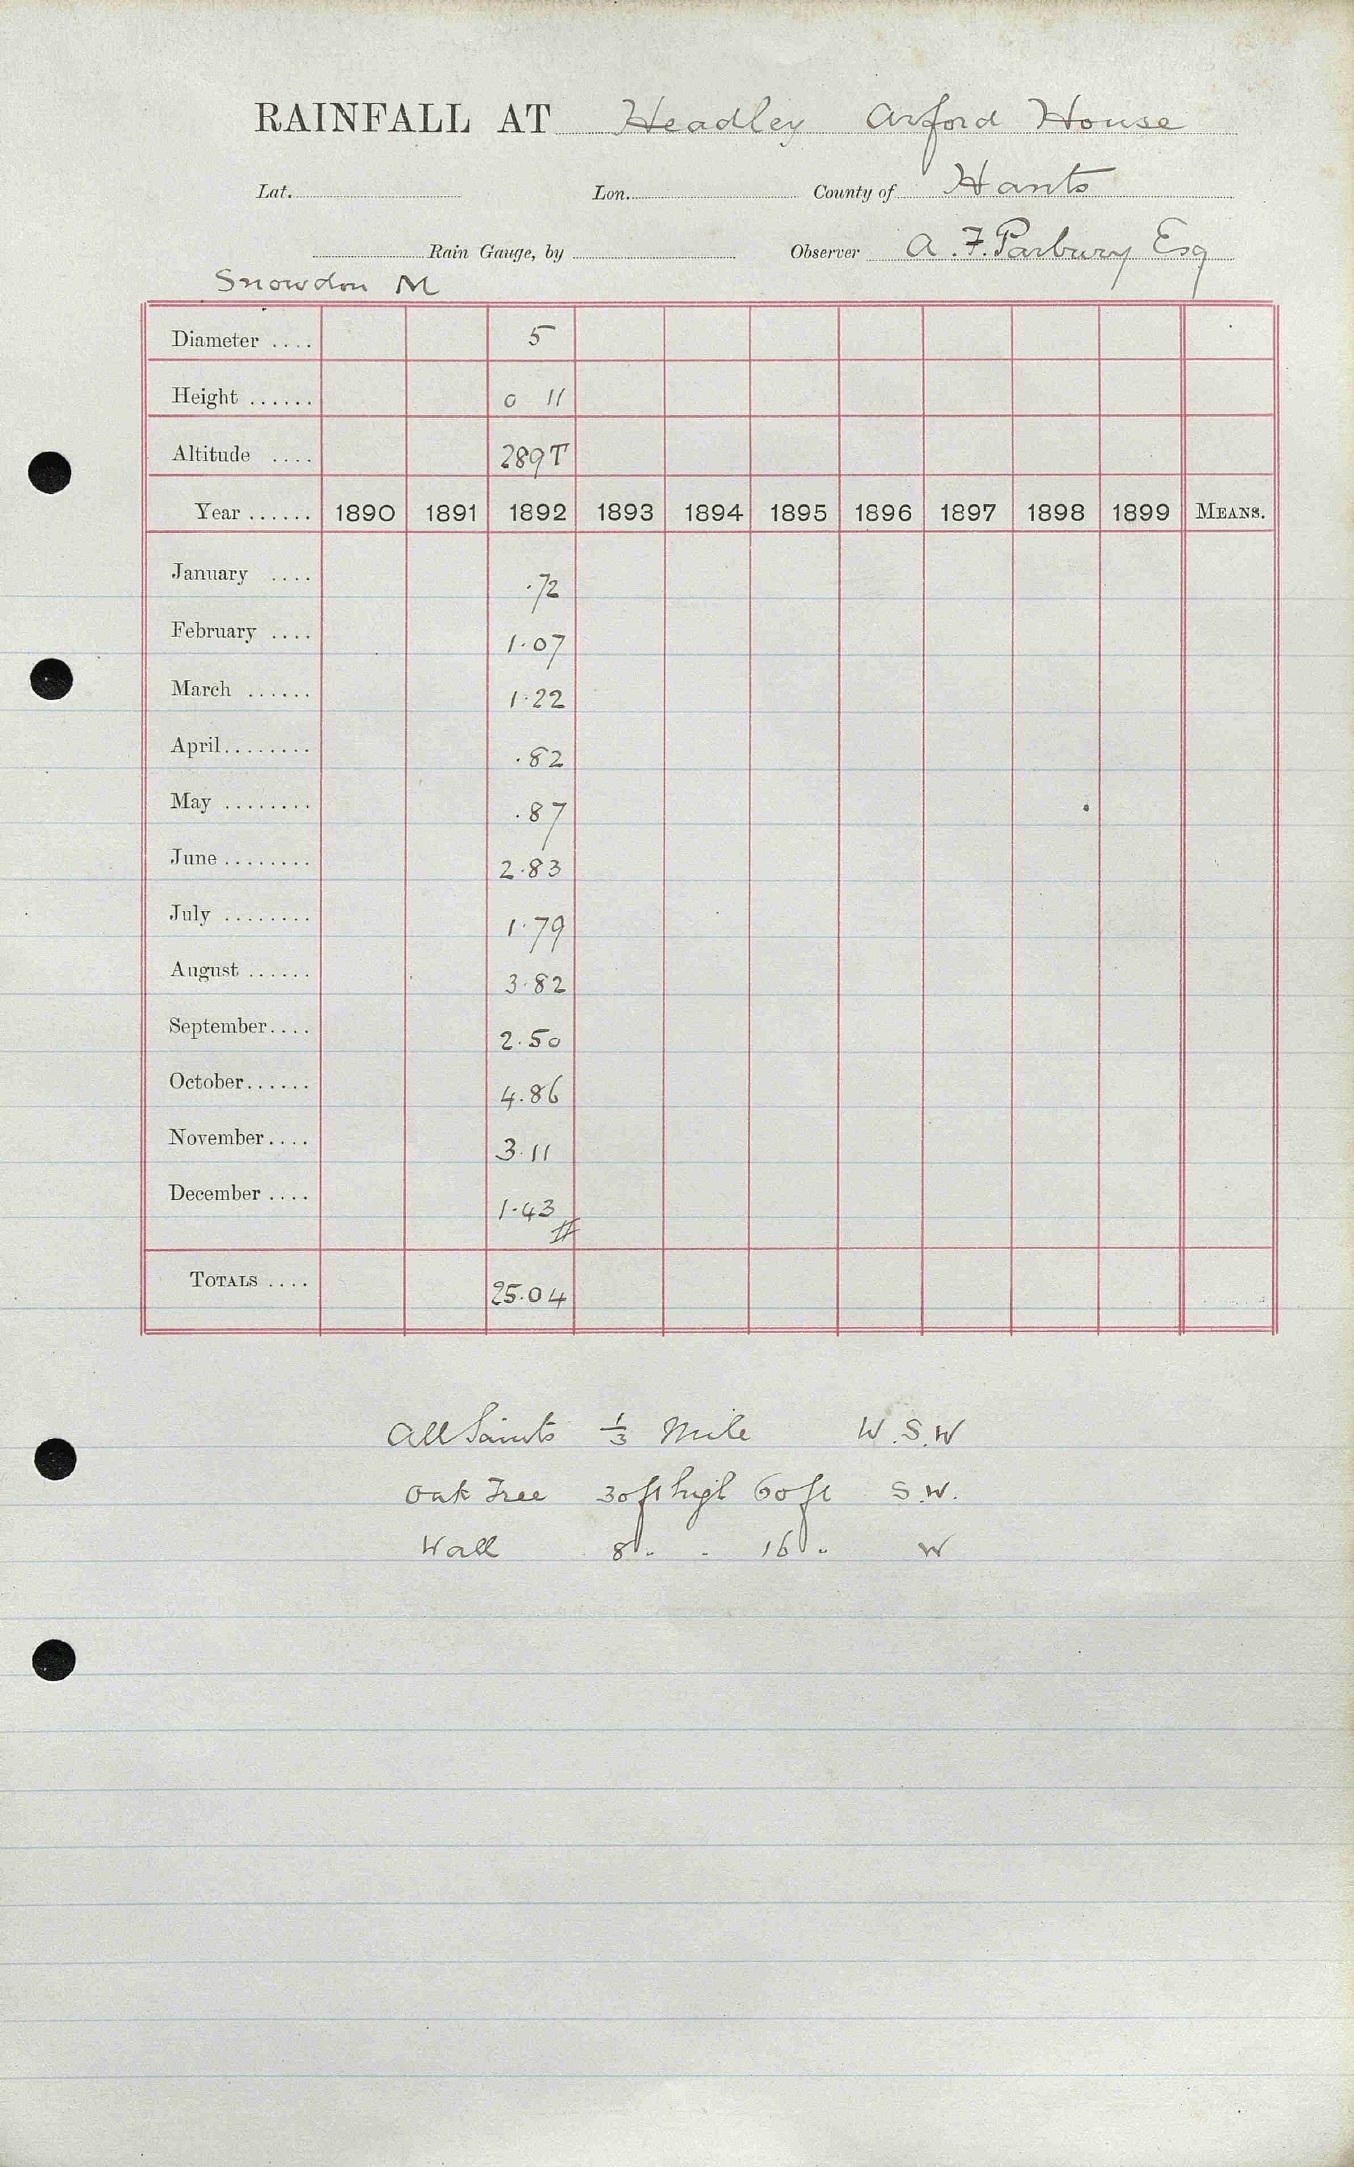 RAINFALL AT Headley Arford House
Lat. Lon. County of Hants
Rain Gauge, by Observer A. F. Parbury Esq
Snowdon M
Diameter .... 5
Height ...... 0 11
Altitude .... 289 T
Year ...... 1890 1891 1892 1893 1894 1895 1896 1897 1898 1899 MEANS.
January .... .72
February .... 1.07
March ...... 1.22
April ........ .82
May ........ .87
June ........ 2.83
July ........ 1.79
August ...... 3.82
September .... 2.50
October ...... 4.86
November .... 3.11
December .... 1.43
TOTALS .... 25.04
All Saints 1/3 Mile W.S.W
Oak Tree 30 ft high 60 ft S.W.
Wall 8 " " 16 " W